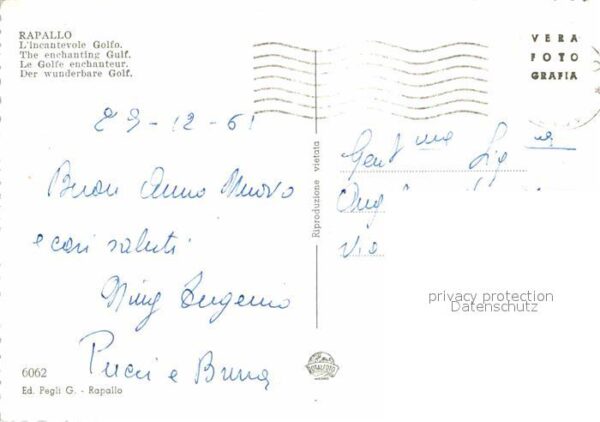 RAPALLO
L'incantevole Golfo.
The enchanting Gulf.
Le Golfe enchanteur.
Der wunderbare Golf.
VERA
FOTO
GRAFIA
29-12-61
Buon Anno Nuovo
e cari saluti
Eugenio
Pucci e Bruna
Gent.ma Sig.na
Via
Riproduzione vietata
privacy protection
Datenschutz
6062
Ed. Pegli G. - Rapallo